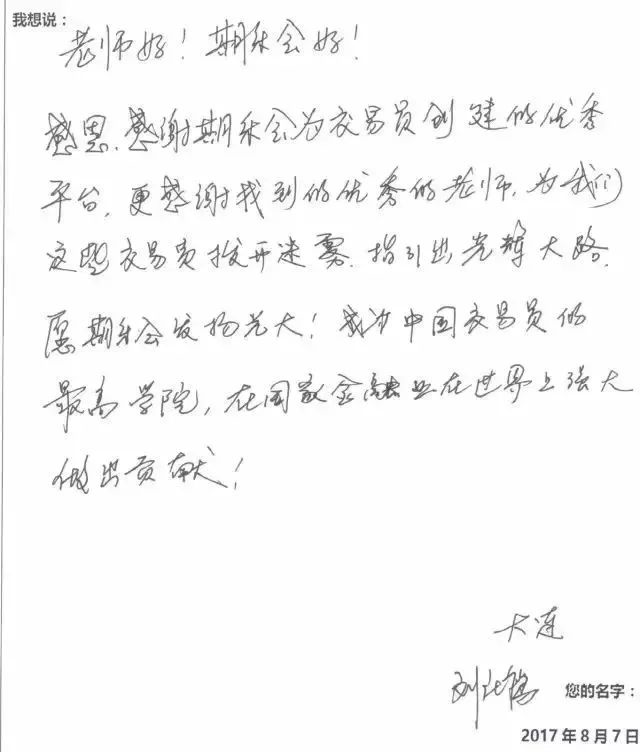 我想说：
老师好！期乐会好！
感恩、感谢期乐会为交易员创建的优秀
平台，更感谢找到的优秀的老师，为我们
这些交易员拨开迷雾，指引出光辉大路，
愿期乐会发扬光大！成为中国交易员的
最高学院，在国家金融业在世界上强大
做出贡献！
大连
刘
您的名字：
2017年8月7日